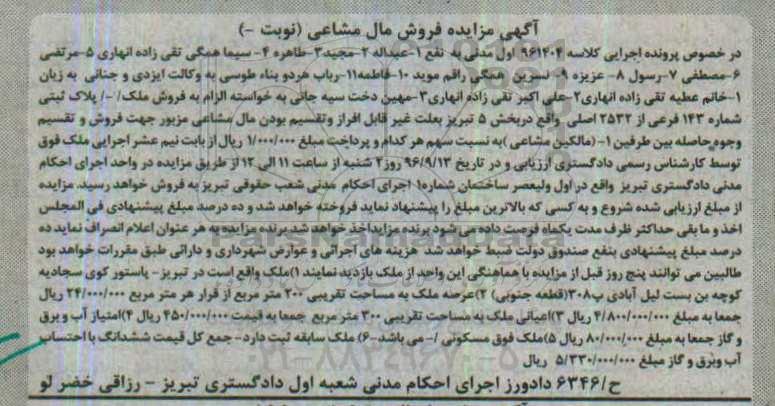 آگهی مزایده فروش مال مشاعی (نوبت -)
در خصوص پرونده اجرایی کلاسه ۹۶۱۴۰۴ اول مدنی به نفع ۱-عبداله ۲-مجید۳-طاهره ۴- سیما همگی تقی زاده انهاری ۵-مرتضی
۶-مصطفی ۷-رسول ۸- عزیزه ۹- نسرین همگی راقم موید ۱۰-فاطمه۱۱-رباب هردو بناء طوسی به وکالت ایزدی و جنانی به زیان
۱-خانم عطیه تقی زاده انهاری۲-علی اکبر تقی زاده انهاری۳-مهین دخت سیه جانی به خواسته الزام به فروش ملک/ -/ پلاک ثبتی
شماره ۱۴۳ فرعی از ۲۵۳۲ اصلی واقع دربخش ۵ تبریز بعلت غیر قابل افراز وتقسیم بودن مال مشاعی مزبور جهت فروش و تقسیم
وجوه حاصله بین طرفین ۱- (مالکین مشاعی )به نسبت سهم هر کدام و پرداخت مبلغ ۱/۰۰۰/۰۰۰ ریال از بابت نیم عشر اجرایی ملک فوق
توسط کارشناس رسمی دادگستری ارزیابی و در تاریخ ۹۶/۹/۱۳ روز۲ شنبه از ساعت ۱۱ الی ۱۲ از طریق مزایده در واحد اجرای احکام
مدنی دادگستری تبریز واقع در اول ولیعصر ساختمان شماره۱ اجرای احکام مدنی شعب حقوقی تبریز به فروش خواهد رسید. مزایده
از مبلغ ارزیابی شده شروع و به کسی که بالاترین مبلغ را پیشنهاد نماید فروخته خواهد شد و ده درصد مبلغ پیشنهادی فی المجلس
اخذ و ما بقی حداکثر ظرف مدت یکماه فرصت داده می شود برنده مزایداخذ خواهد شد برنده مزایده به هر عنوان اعلام انصراف نماید ده
درصد مبلغ پیشنهادی بنفع صندوق دولت ضبط خواهد شد هزینه های اجرائی و عوارض شهرداری و دارائی طبق مقررات خواهد بود
طالبین می توانند پنج روز قبل از مزایده با هماهنگی این واحد از ملک بازدید نمایند ۱)ملک واقع است در تبریز- پاستور کوی سجادیه
کوچه بن بست لیل آبادی پ۳۰۸(قطعه جنوبی) ۲)عرصه ملک به مساحت تقریبی ۲۰۰ متر مربع از قرار هر متر مربع ۲۴/۰۰۰/۰۰۰ ریال
جمعا به مبلغ ۴/۸۰۰/۰۰۰/۰۰۰ ریال ۳)اعیانی ملک به مساحت تقریبی ۳۰۰ متر مربع جمعا به قیمت ۴۵۰/۰۰۰/۰۰۰ ریال ۴)امتیاز آب و برق
و گاز جمعا به مبلغ ۸۰/۰۰۰/۰۰۰ ریال ۵)ملک فوق مسکونی /- می باشد ۶) ملک سابقه ثبت دارد- جمع کل قیمت ششدانگ با احتساب
آب وبرق و گاز مبلغ ۵/۳۳۰/۰۰۰/۰۰۰ ریال
ح/۶۳۴۶ دادورز اجرای احکام مدنی شعبه اول دادگستری تبریز - رزاقی خضر لو